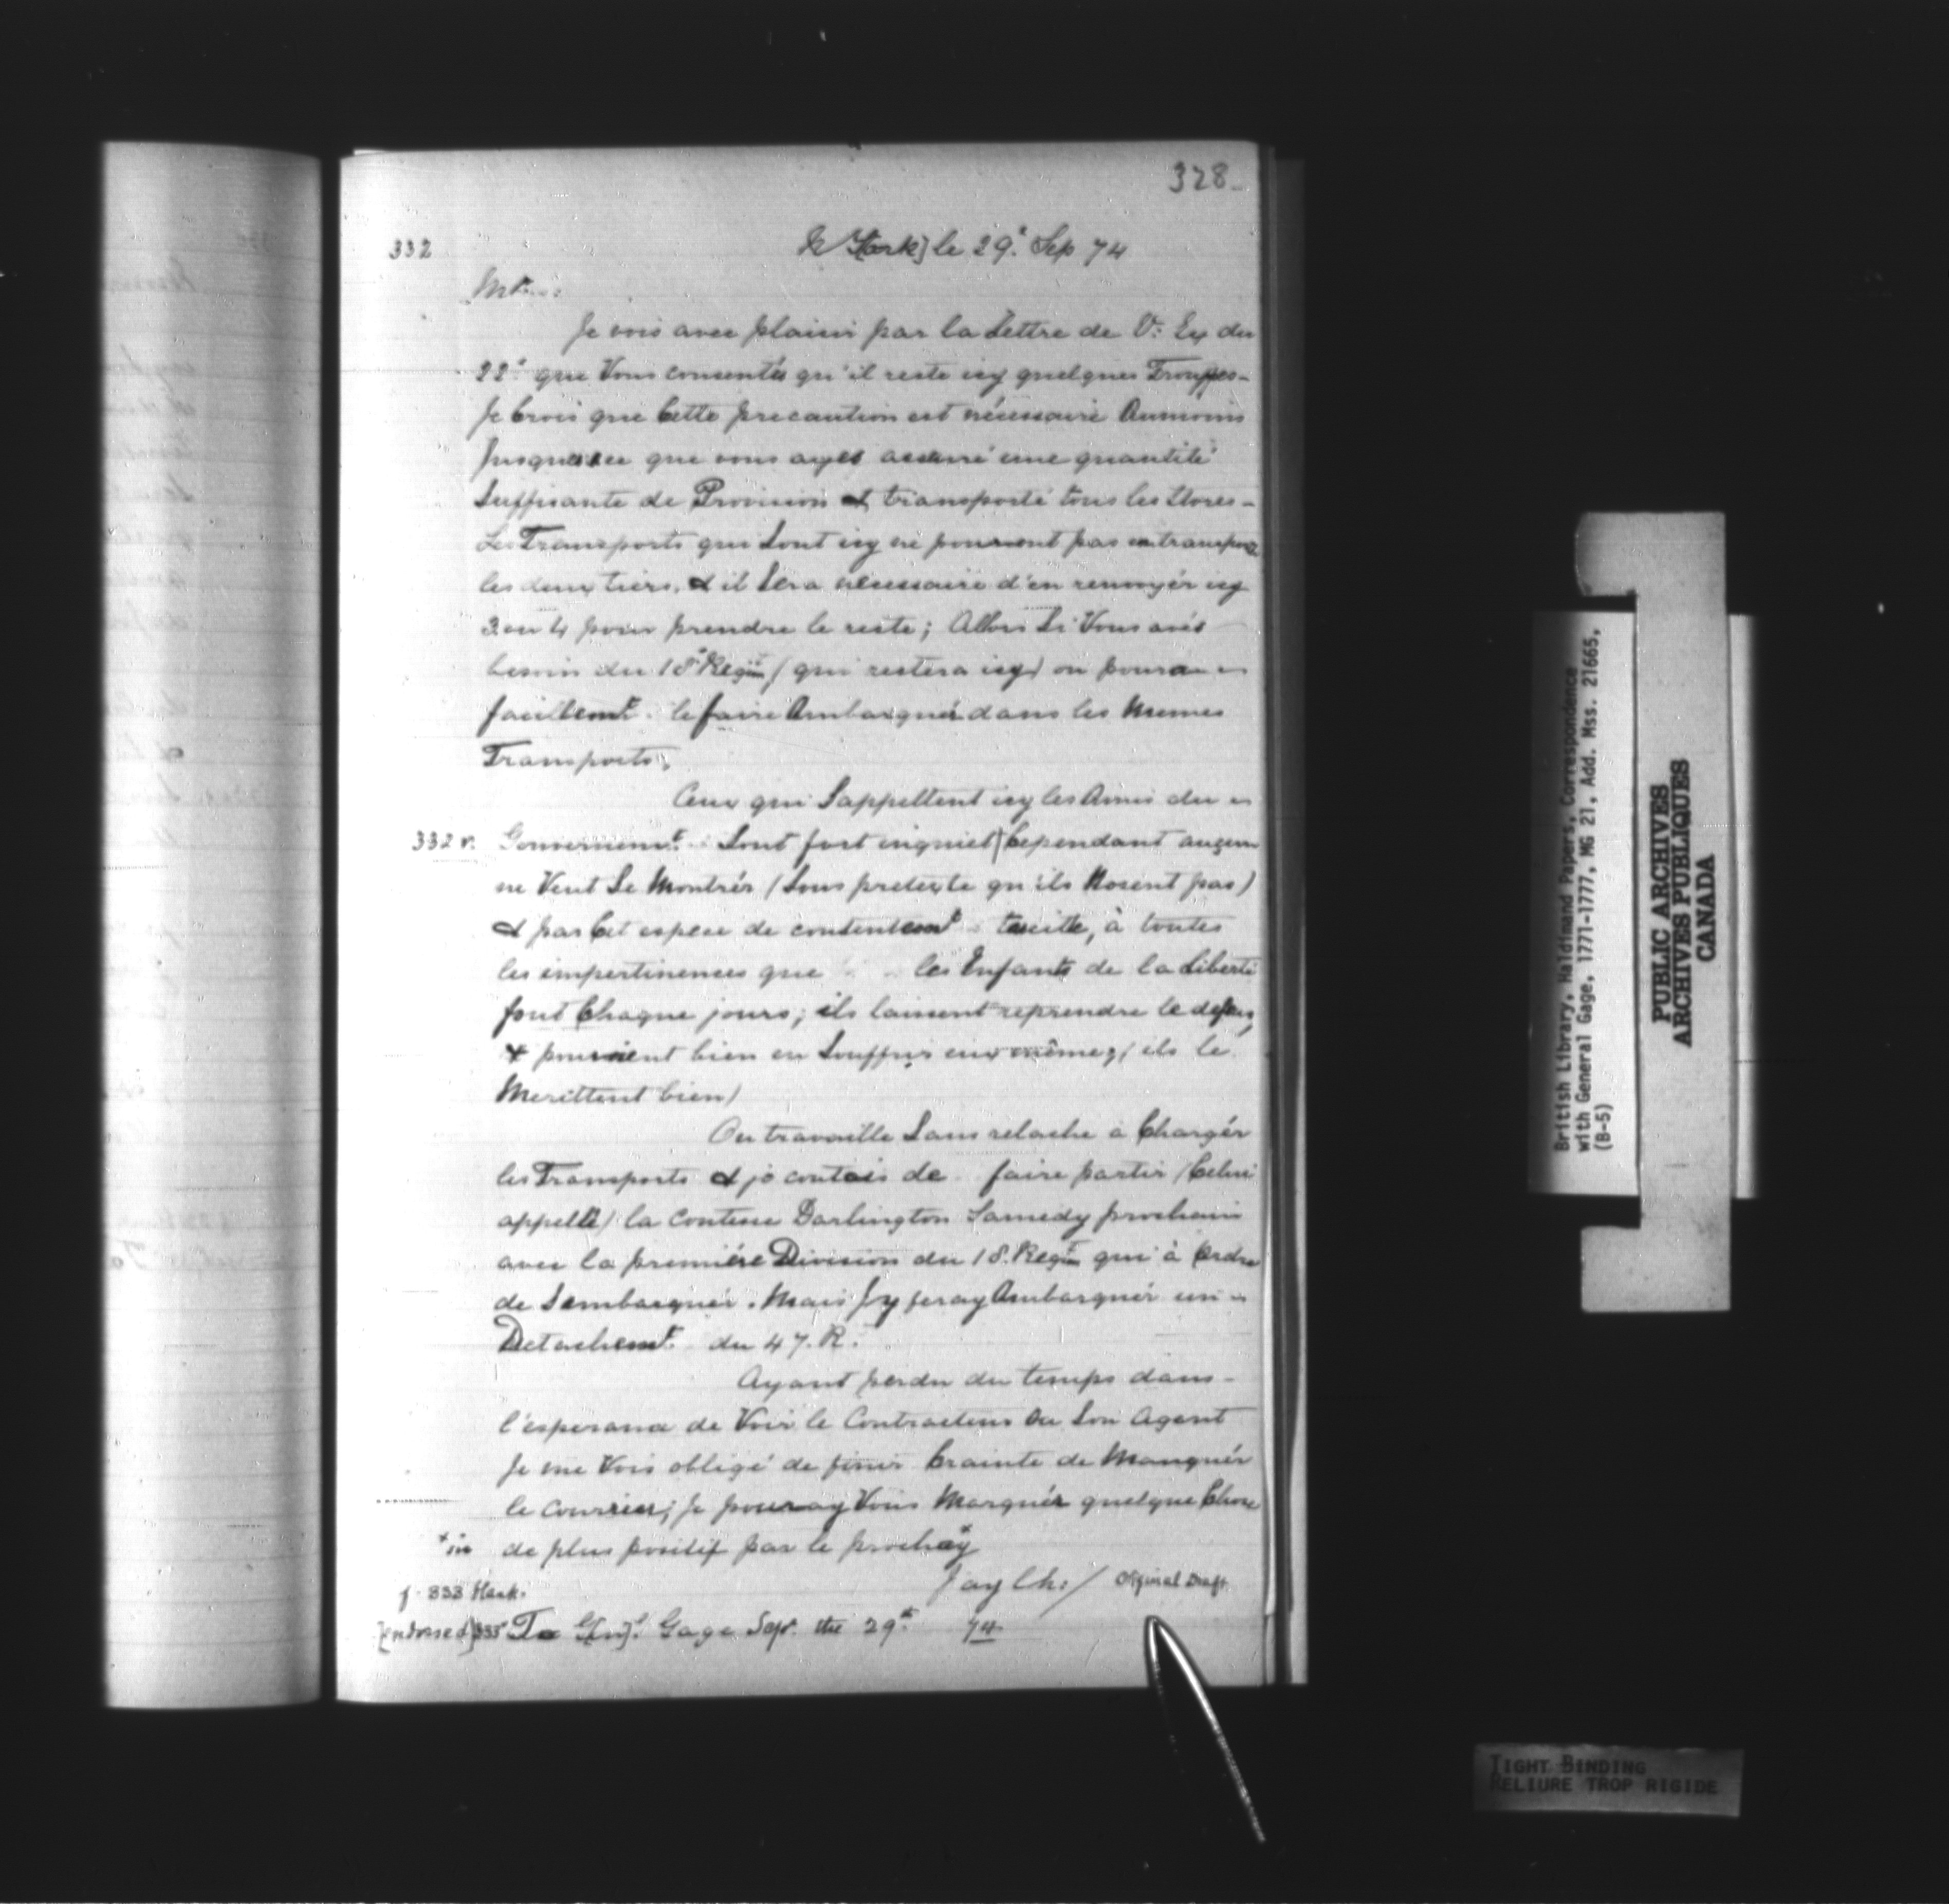 328
332
N York] le 29.e Sep 74
Je vois avec plaisir par la Lettre de V: Ex du
22e que Vous consentés qu'il reste icy quelques Trouppes-
Je Crois que Cette precaution est nécessaire Aumoins
Jusquasce que vous ayés assuré une quantité
Suffisante de Provision & transporté tous les Stores-
Les Transports qui Sont icy ne pouront pas en transporter
les deux tiers, & il Sera necessaire d'en renvoyér icy
3 ou 4 pour prendre le reste; Allors Si Vous avés
besoin du 18e Regimt (qui restera icy) on poura
facillemt. le faire Ambarquér dans les Memes
Transports.
Ceux qui Sappellent icy les Amis du
332 v. Gouvernemt. Sont fort inquiet) Cependant aucun
ne Veut Se Montrér (Sous pretexte qu'ils Nosent pas)
& par Cet espece de contentemt tacitte, à toutes
les impertinences que les Enfants de la Liberté
font Chaque jours; ils laissent reprendre le dessus,
& pouroient bien en Souffrir eux même; (ils le
Merittent bien)
On travaille Sans relache à Chargér
les Transports & je contois de faire partir (Celui
appellé) la Contesse Darlington Samedy prochain
avec la premiére Division du 18. Regimt qui à Ordre
de Sembarquér. Mais Jy feray Ambarquér un
Detachemt. du 47. R.
Ayant perdu du temps dans-
l'esperance de Voir le Contracteur Ou Son Agent
Je me Vois obligé de finir Crainte de Manquér
le Courrier; Je pouray Vous Marquér quelque Chose
x in de plus positif par le prochayx
Jay Lh:/ Original Draft.
f. 333 blank.
[endorsed] 333v To G[en]l. Gage Sepr. the 29th 74
British Library, Haldimand Papers, Correspondence
with General Gage, 1771-1777, MG 21, Add. Mss. 21665,
(B-5)
PUBLIC ARCHIVES
ARCHIVES PUBLIQUES
CANADA
TIGHT BINDING
RELIURE TROP RIGIDE